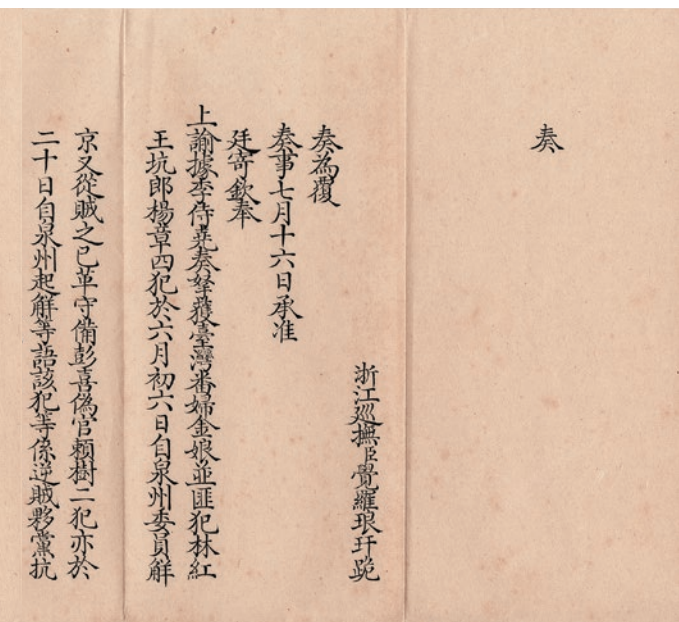 奏
浙江巡撫臣覺羅琅玕跪
奏為覆
奏事七月十六日承准
廷寄欽奉
上諭據李侍堯奏拏獲臺灣番婦金娘並匪犯林紅
王坑郎楊章四犯於六月初六日自泉州委員解
京又從賊之已革守備彭喜偽官賴樹二犯亦於
二十日自泉州起解等語該犯等係逆賊夥黨抗